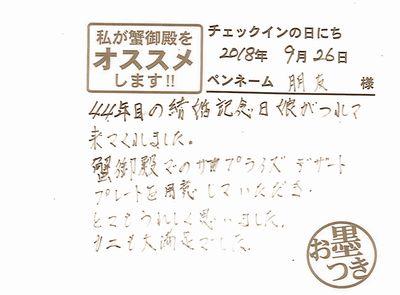 私が蟹御殿を
オススメ
します!!
チェックインの日にち
2018年 9月26日
ペンネーム 朋友 様
44年目の結婚記念日娘がつれて
来てくれました。
蟹御殿でのサプライズデザート
プレートを用意していただき
とてもうれしく思いました。
カニも大満足でした。
お墨つき